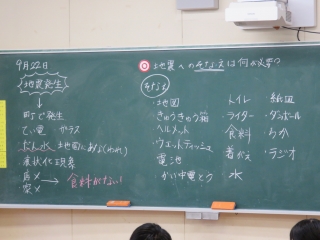 9月22日
地震発生
↓
町で発生
てい電 ガラス
だん水 土地図
液状化現象
店×
家×
→食料がない!
◎地震へのそなえは何が必要?
そなえ
・地図
・きゅうきゅう箱
・ヘルメット
・ウエットティッシュ
・電池
・かい中電とう
・トイレ
・ライター
・食料
・着がえ
・水
・紙皿
・ダンボール
・ラジオ